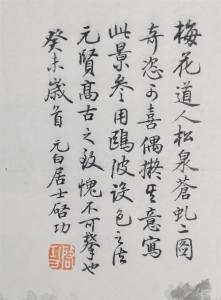 梅花道人松泉蒼虬二圖
奇恣可喜偶擬其意寫
此景叅用鷗波設色之法
元賢高古之致愧不可攀也
癸未歲首 元白居士啓功
啓功